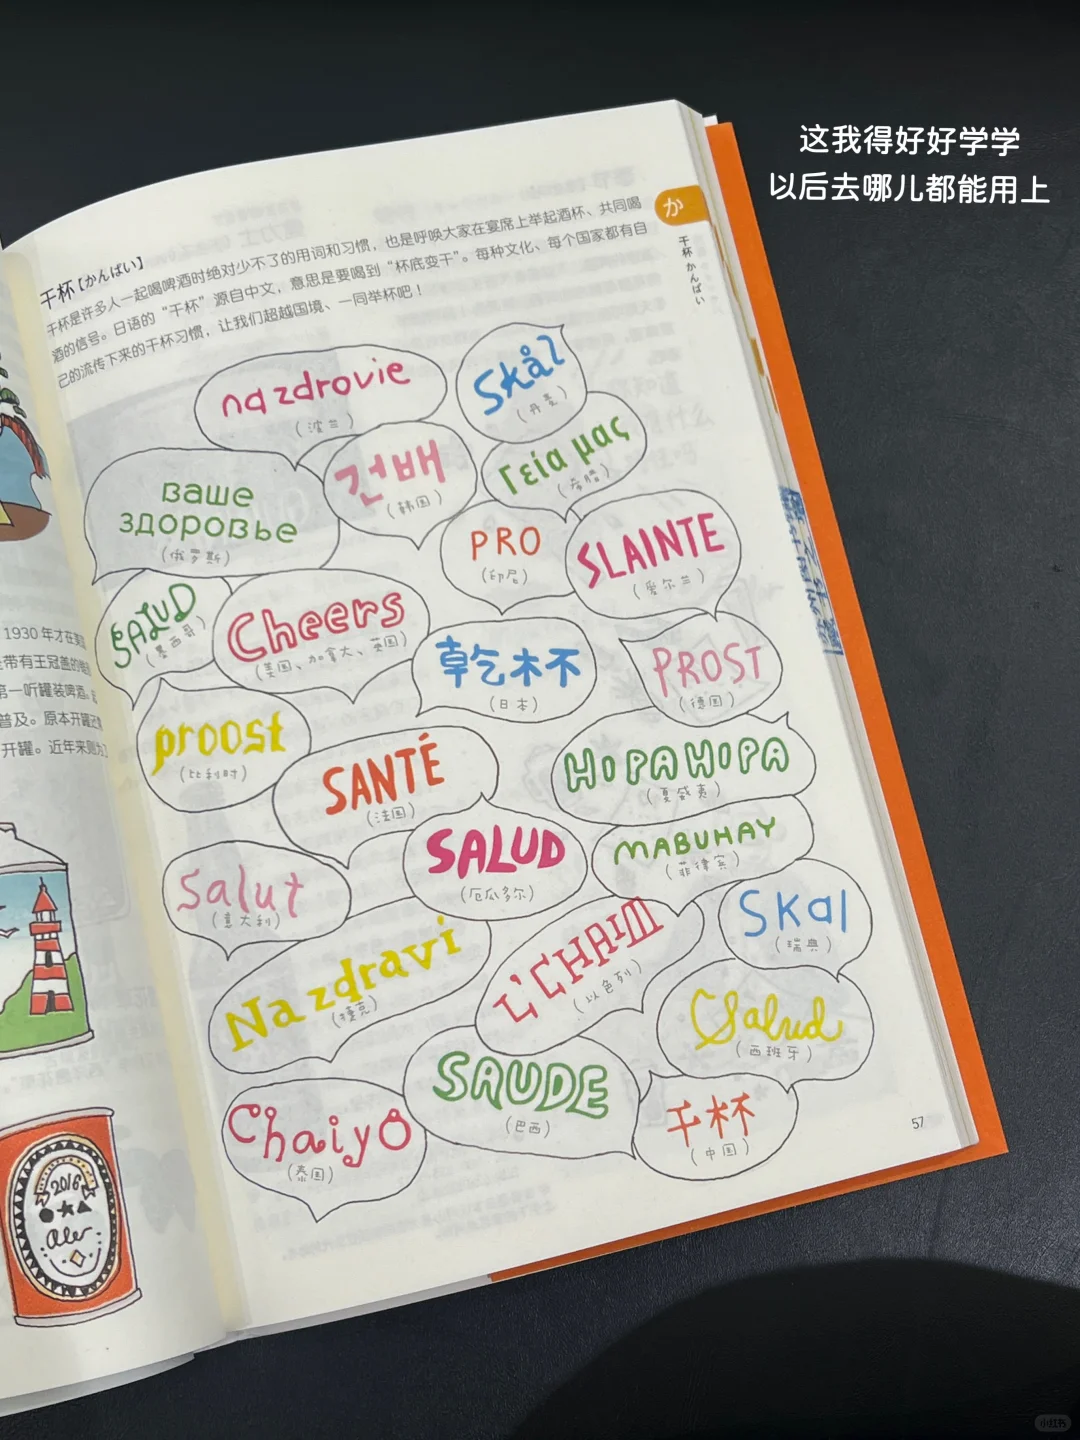 这我得好好学学
以后去哪儿都能用上
か
干杯 かんぱい
干杯【かんぱい】
干杯是许多人一起喝啤酒时绝对少不了的用词和习惯，也是呼唤大家在宴席上举起酒杯、共同喝
酒的信号。日语的“干杯”源自中文，意思是要喝到“杯底变干”。每种文化、每个国家都有自
己的流传下来的干杯习惯，让我们超越国境、一同举杯吧！
na zdrovie
（波兰）
Skål
（丹麦）
건배
（韩国）
Γεία μας
（希腊）
ваше
здоровье
（俄罗斯）
PRO
（印尼）
SLAINTE
（爱尔兰）
SALUD
（墨西哥）
Cheers
（美国、加拿大、英国）
乾杯
（日本）
PROST
（德国）
proost
（比利时）
SANTÉ
（法国）
HIPAHIPA
（夏威夷）
SALUD
（厄瓜多尔）
MABUHAY
（菲律宾）
Salut
（意大利）
Skal
（瑞典）
Na zdravi
（捷克）
L'CHAIM
（以色列）
Salud
（西班牙）
SAUDE
（巴西）
Chaiyo
（泰国）
干杯
（中国）
57
1930 年才在美
带有王冠盖的
第一听罐装啤酒。
普及。原本开罐
开罐。近年来则为
2016
ale
小红书